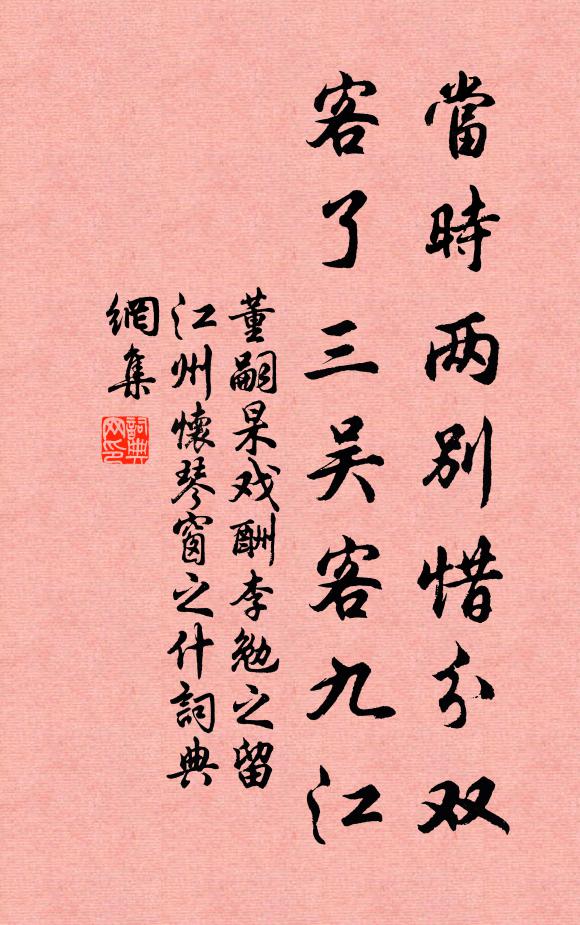 當時两别惜分双
客了三吴客九江
董嗣杲戏酬李勉之留
江州懷琴窗之什詞典
網集
詞典网印